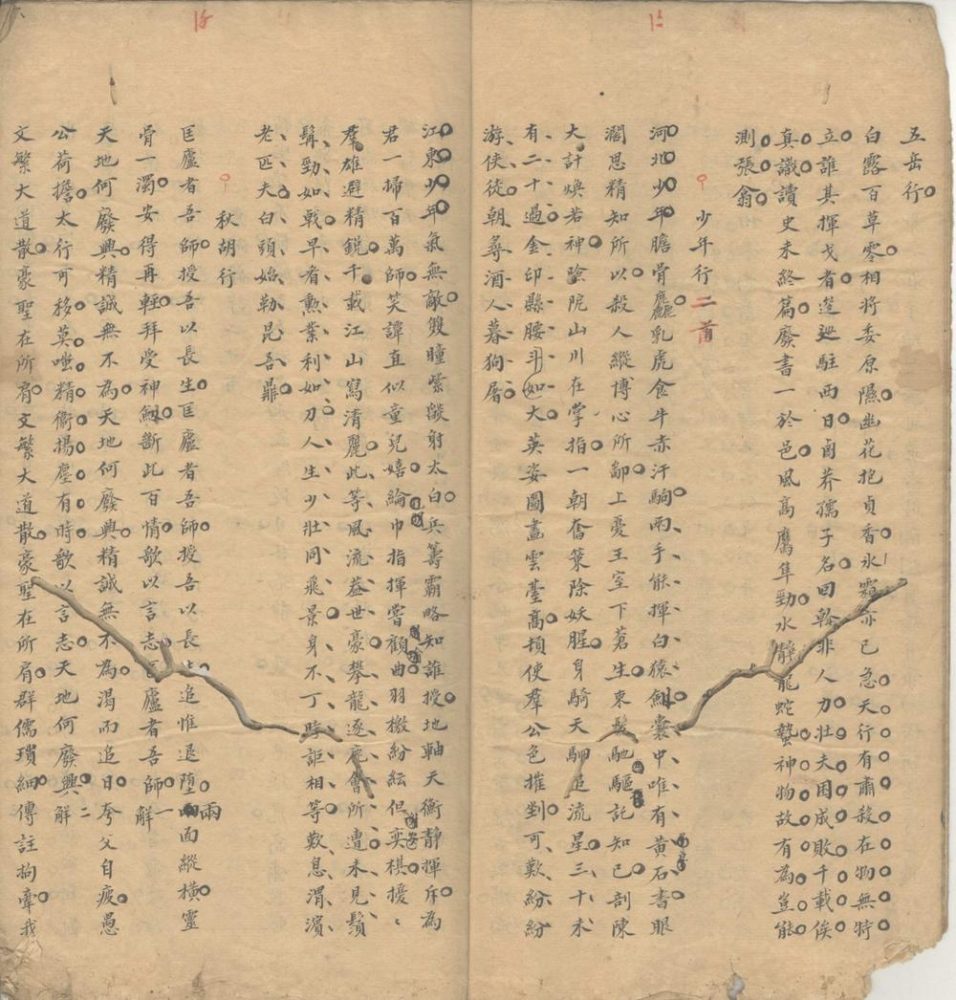 五岳行
白露百草零相將委原隰幽花抱貞香水窮亦已急天行有肅殺在物無特
立誰其揮戈者逡廵駐西日鹵莽孺子名回斡非人力壯夫困成敗千載俟
真識讀史未終篇廢書一於邑風高鷹隼勁水靜龍蛇蟄神物故有為豈能
測張翁
少年行二首
河北少年膽骨麤乳虎食牛赤汗駒兩手能揮白猿劍囊中唯有黃石書眼
濶思精知所以殺人縱博心所鄙上憂王室下蒼生束髮馳驅託知己剖陳
大計煥若神險阨山川在掌指一朝奮策除妖腥身騎天駟追流星三十未
有二十過金印縣腰斗如大英姿圖畫雲臺高頓使羣公色摧剉可歎紛紛
游俠徒朝尋酒人暮狗屠
江東少年氣無敵雙瞳紫燄射太白兵籌霸略知誰授地軸天衡靜揮斥為
君一掃百萬師笑譚直似童兒嬉綸巾指揮嘗顧曲羽檄紛紜但奕棋擾擾
羣雄避精銳千載江山寫清麗此等風流葢世豪攀龍逐鹿會所遭未見鬚
髯勁如戟早看勲業利如刀人生少壯同飛景身不丁時詎相等歎息渭濱
老匹夫白頭始勒昆吾鼎
秋胡行
匡廬者吾師授吾以長生匡廬者吾師授吾以長生追惟退堕雨面縱橫靈
骨一濁安得再輕拜受神劍斷此百情歌以言志匡廬者吾師一解
天地何廢興精誠無不為天地何廢興精誠無不為渴而追日夸父自疲愚
公荷擔太行可移莫嗤精衛揚塵有時歌以言志天地何廢興二解
文繁大道散豪聖在所肩文繁大道散豪聖在所肩群儒瑣細傳註拘牽我